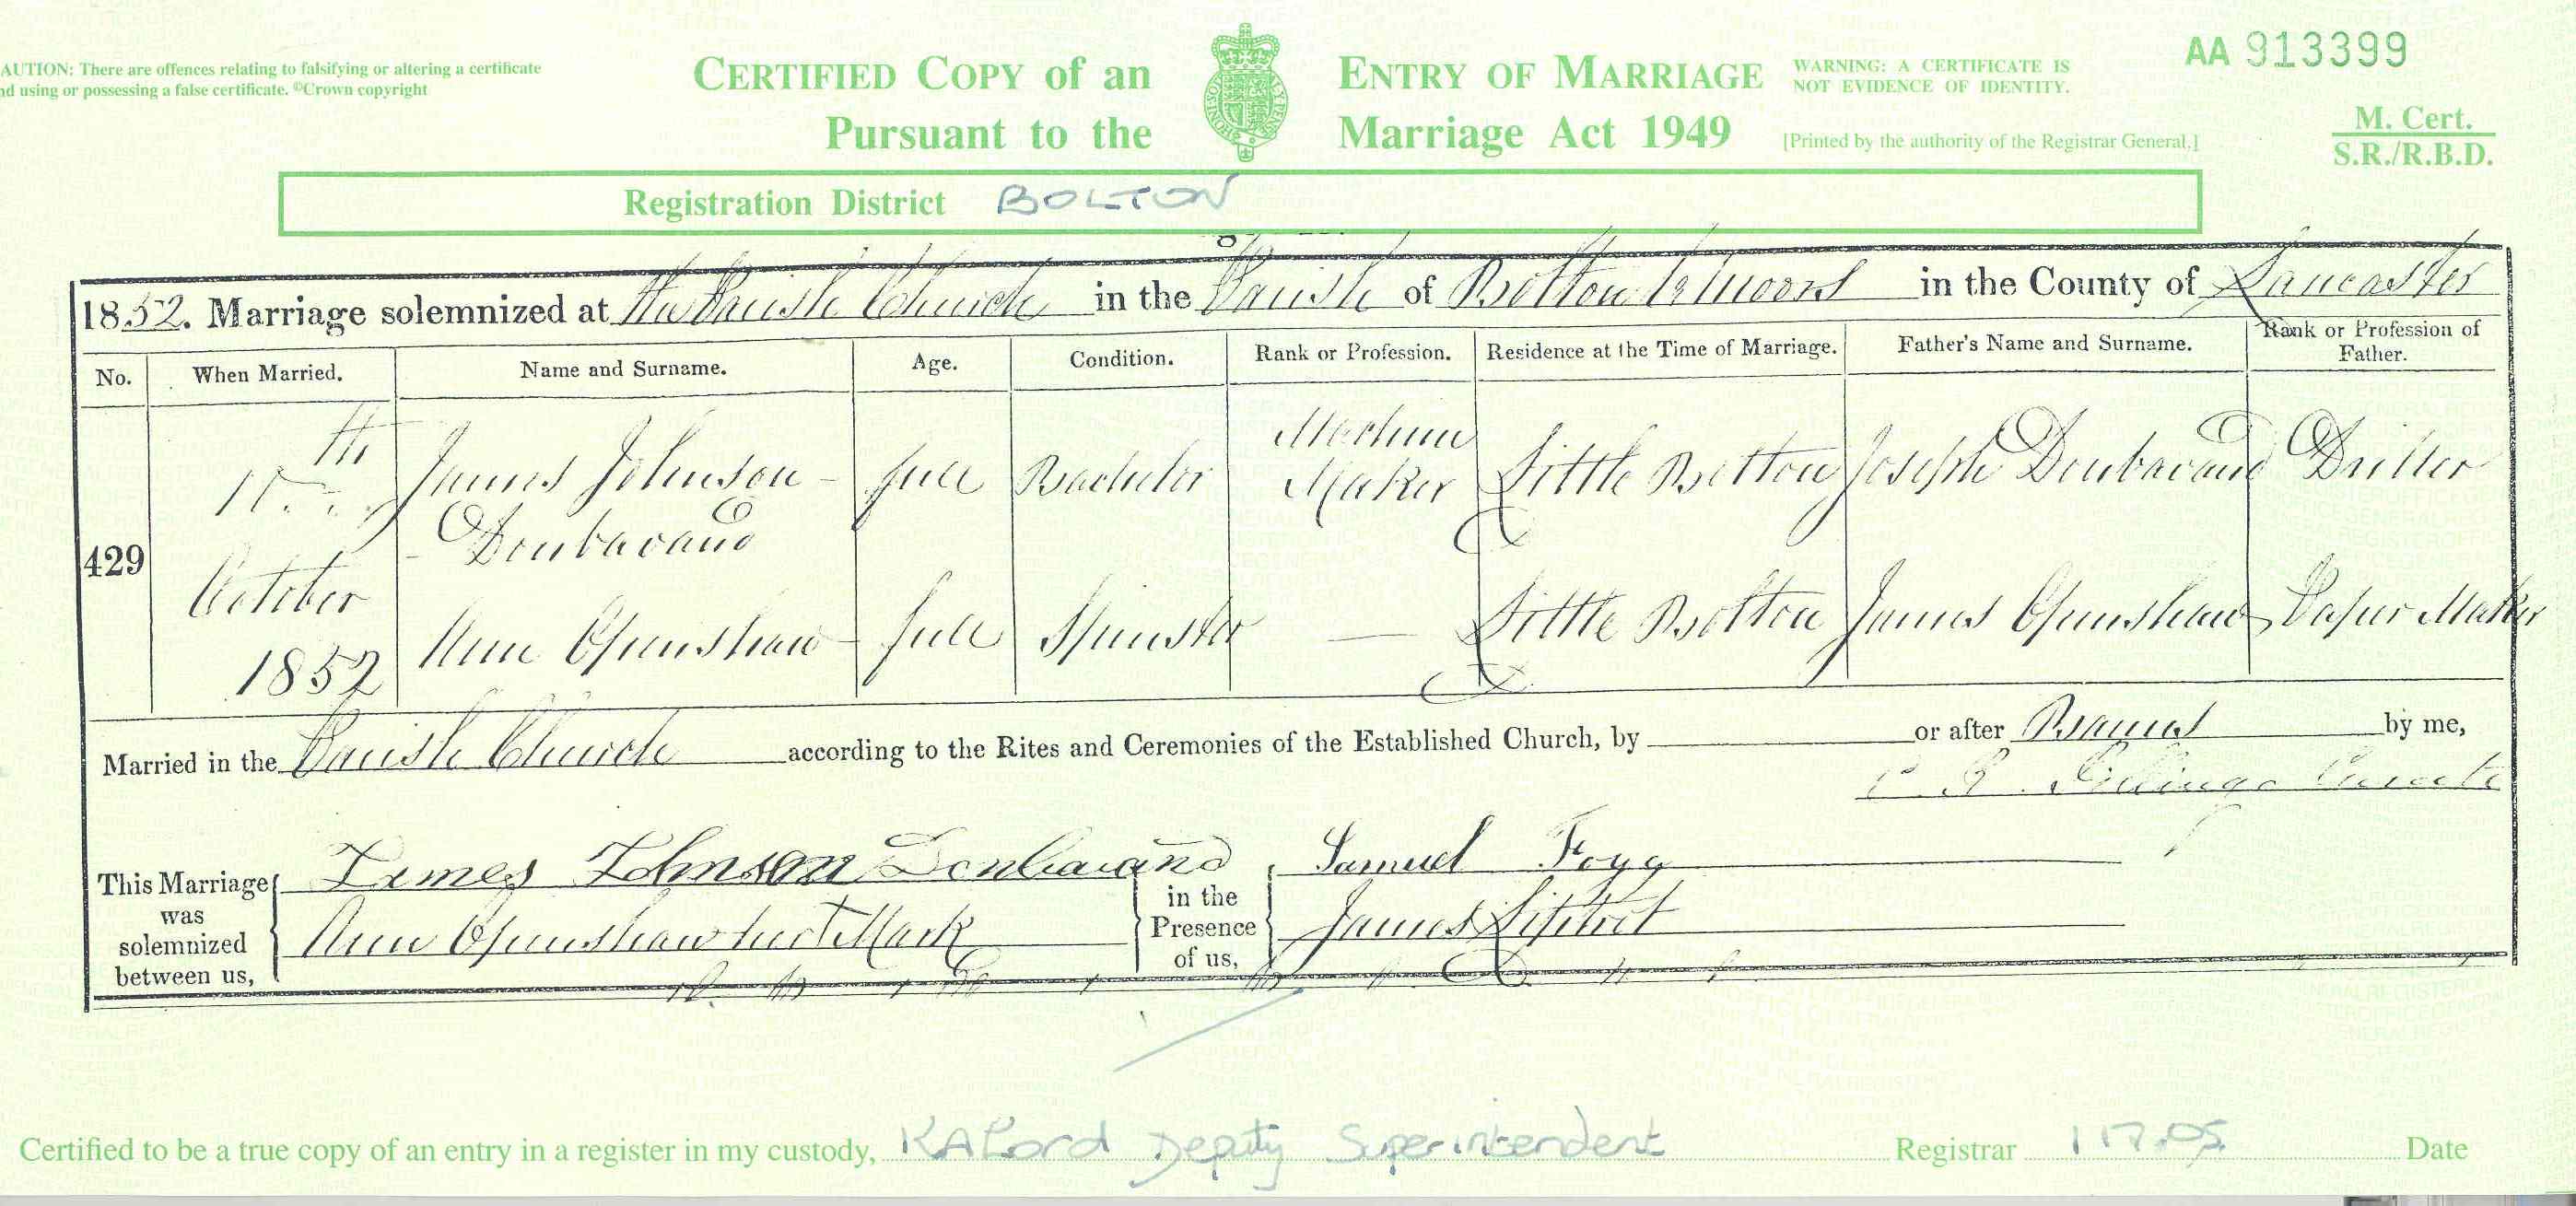 AUTION: There are offences relating to falsifying or altering a certificate
nd using or possessing a false certificate. ©Crown copyright
CERTIFIED COPY of an ENTRY OF MARRIAGE
Pursuant to the Marriage Act 1949
WARNING: A CERTIFICATE IS
NOT EVIDENCE OF IDENTITY.
[Printed by the authority of the Registrar General.]
AA 913399
M. Cert.
S.R./R.B.D.
Registration District BOLTON
1852. Marriage solemnized at the Parish Church in the Parish of Bolton le Moors in the County of Lancaster
No. When Married. Name and Surname. Age. Condition. Rank or Profession. Residence at the Time of Marriage. Father's Name and Surname. Rank or Profession of Father.
429
th
October
1852
James Johnson
Doubavand
full
Bachelor
Machine
Maker
Little Bolton
Joseph Doubavand
Driller
Ann Openshaw
full
Spinster
—
Little Bolton
James Openshaw
Paper Maker
Married in the Parish Church according to the Rites and Ceremonies of the Established Church, by or after Banns by me,
Curate
This Marriage was solemnized between us,
James Johnson Doubavand
Ann Openshaw her X Mark
in the Presence of us,
Samuel Fogg
James Liptrot
Certified to be a true copy of an entry in a register in my custody, KALord Deputy Superintendent Registrar Date